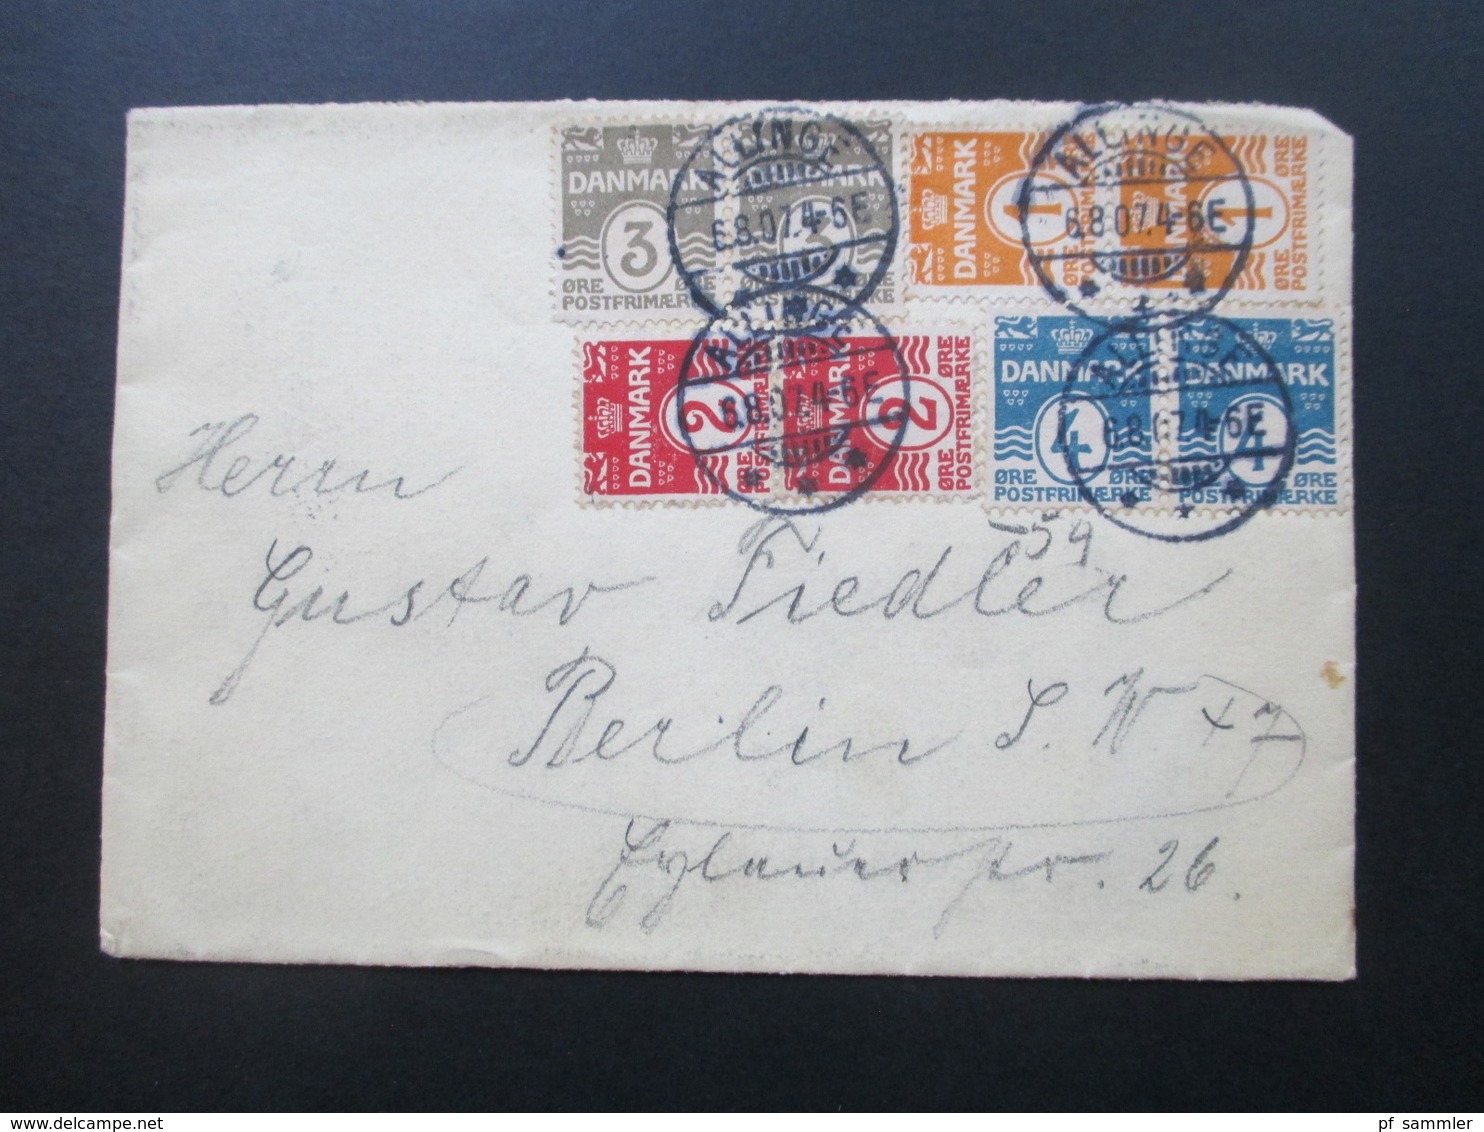 DANMARK 3 ØRE ØRE POSTFRIMÆRKE
DANMARK 3 ØRE ØRE POSTFRIMÆRKE
ALLINGE 6.8.07.4-6E
DANMARK 1 ØRE ØRE POSTFRIMÆRKE
DANMARK 1 ØRE ØRE POSTFRIMÆRKE
ALLINGE 6.8.07.4-6E
DANMARK 2 ØRE ØRE POSTFRIMÆRKE
DANMARK 2 ØRE ØRE POSTFRIMÆRKE
ALLINGE 6.8.07.4-6E
DANMARK 4 ØRE ØRE POSTFRIMÆRKE
DANMARK 4 ØRE ØRE POSTFRIMÆRKE
ALLINGE 6.8.07.4-6E
Herrn
Gustav Fiedler
Berlin S.W. 47
Eylauer str. 26.
delcampe.net
pf_sammler